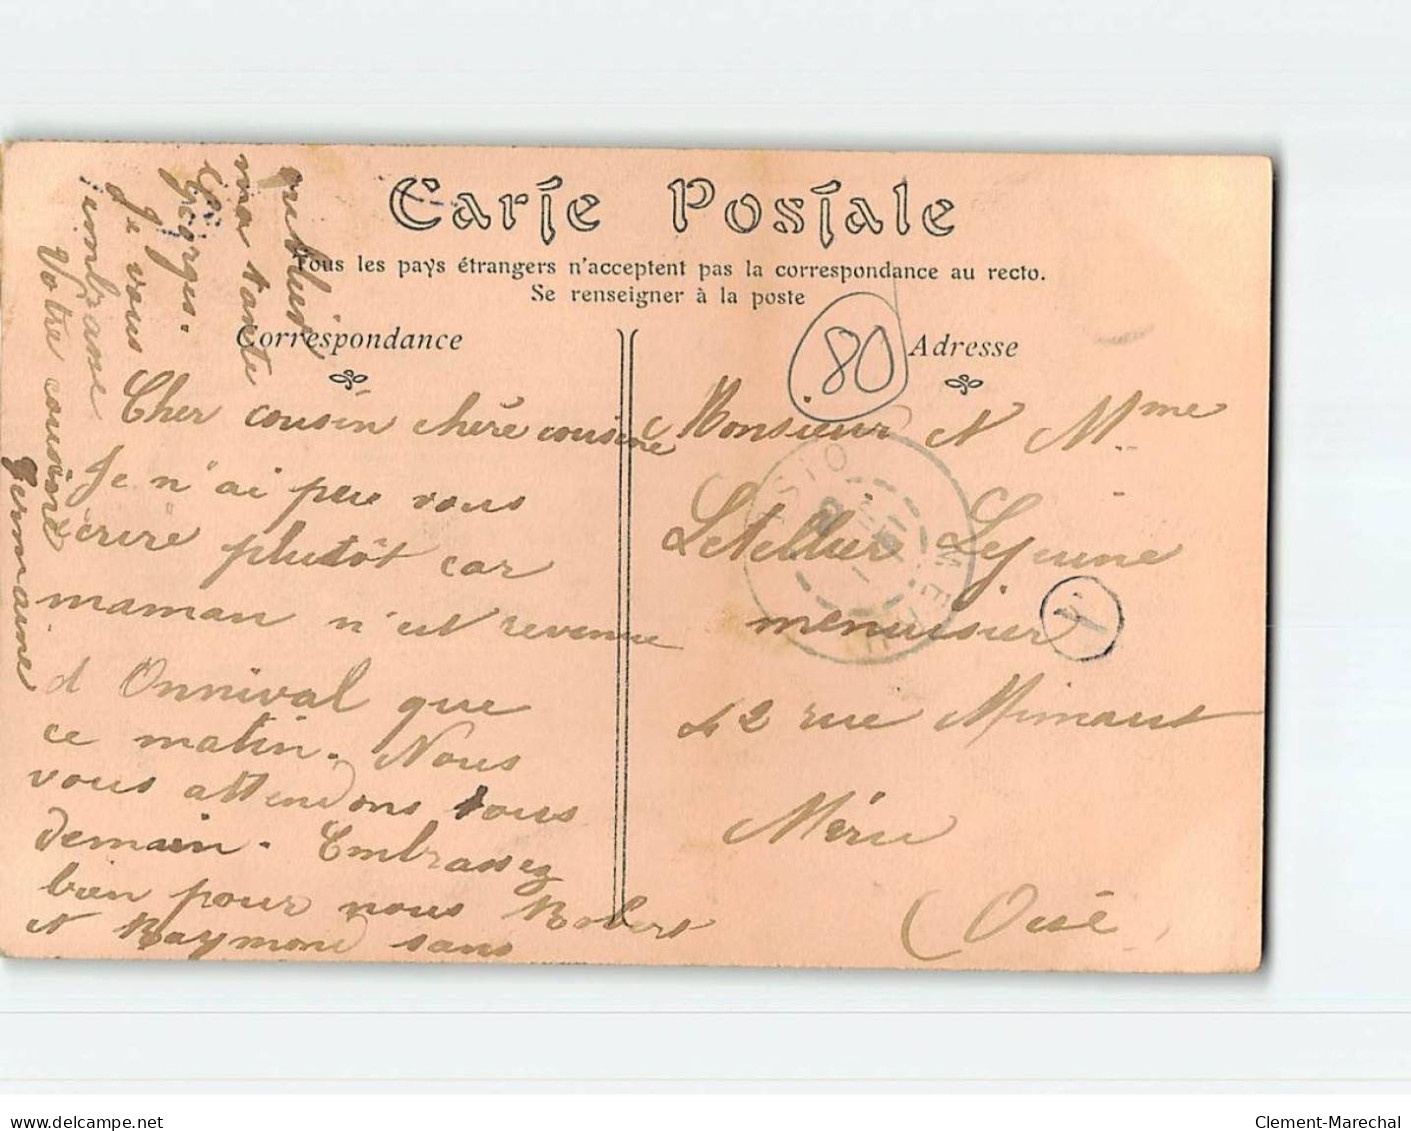 Carte Postale
Tous les pays étrangers n'acceptent pas la correspondance au recto.
Se renseigner à la poste
Correspondance
Adresse
80
Cher cousin chère cousine
Je n'ai peu vous
écrire plutôt car
maman n'est revenue
d Onnival que
ce matin. Nous
vous attendons tous
demain. Embrassez
bien pour nous Robert
et Raymond sans
oublier
ma tante
Georges.
Je vous
embrasse
Votre cousine
Germaine
Monsieur et Mme
Letellier Lejeune
menuisier
42 rue Mimaut
Méru
(Oise
OISE
MERU
delcampe.net
Clement-Marechal